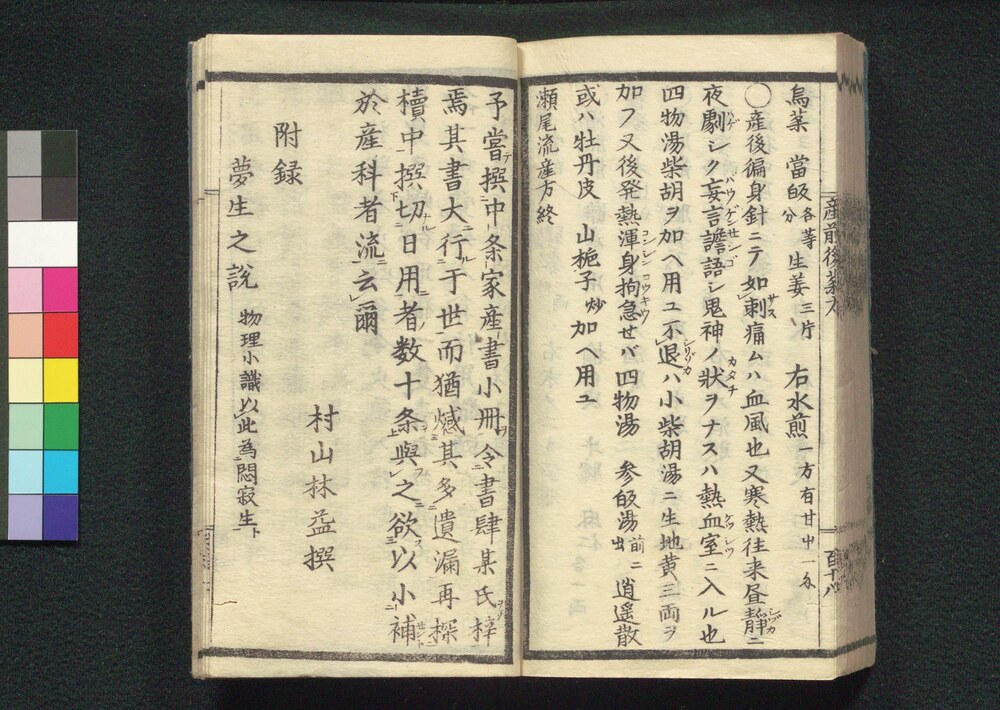 烏薬 當皈各等分 生姜三片 右水煎一方有甘中一
〇産後徧身針ニテ如刺痛ムハ血風也又寒熱往来昼静ニ
夜劇シク妄言譫語シ鬼神ノ状ヲナスハ熱血室ニ入ル也
四物湯柴胡ヲ加ヘ用ユ不退ハ小柴胡湯ニ生地黄三両ヲ
加フ又後発熱渾身拘急セバ四物湯 参皈湯前ニ出 逍遥散
或ハ牡丹皮 山梔子炒加ヘ用ユ
瀬尾流産方終
予嘗撰中条家産書小冊令書肆某氏梓
焉其書大行于世而猶憾其多遺漏再探
櫝中撰切日用者数十条與之欲以小補
於産科者流云爾
村山林益撰
附録
夢生之説 物理小識以此為悶寂生